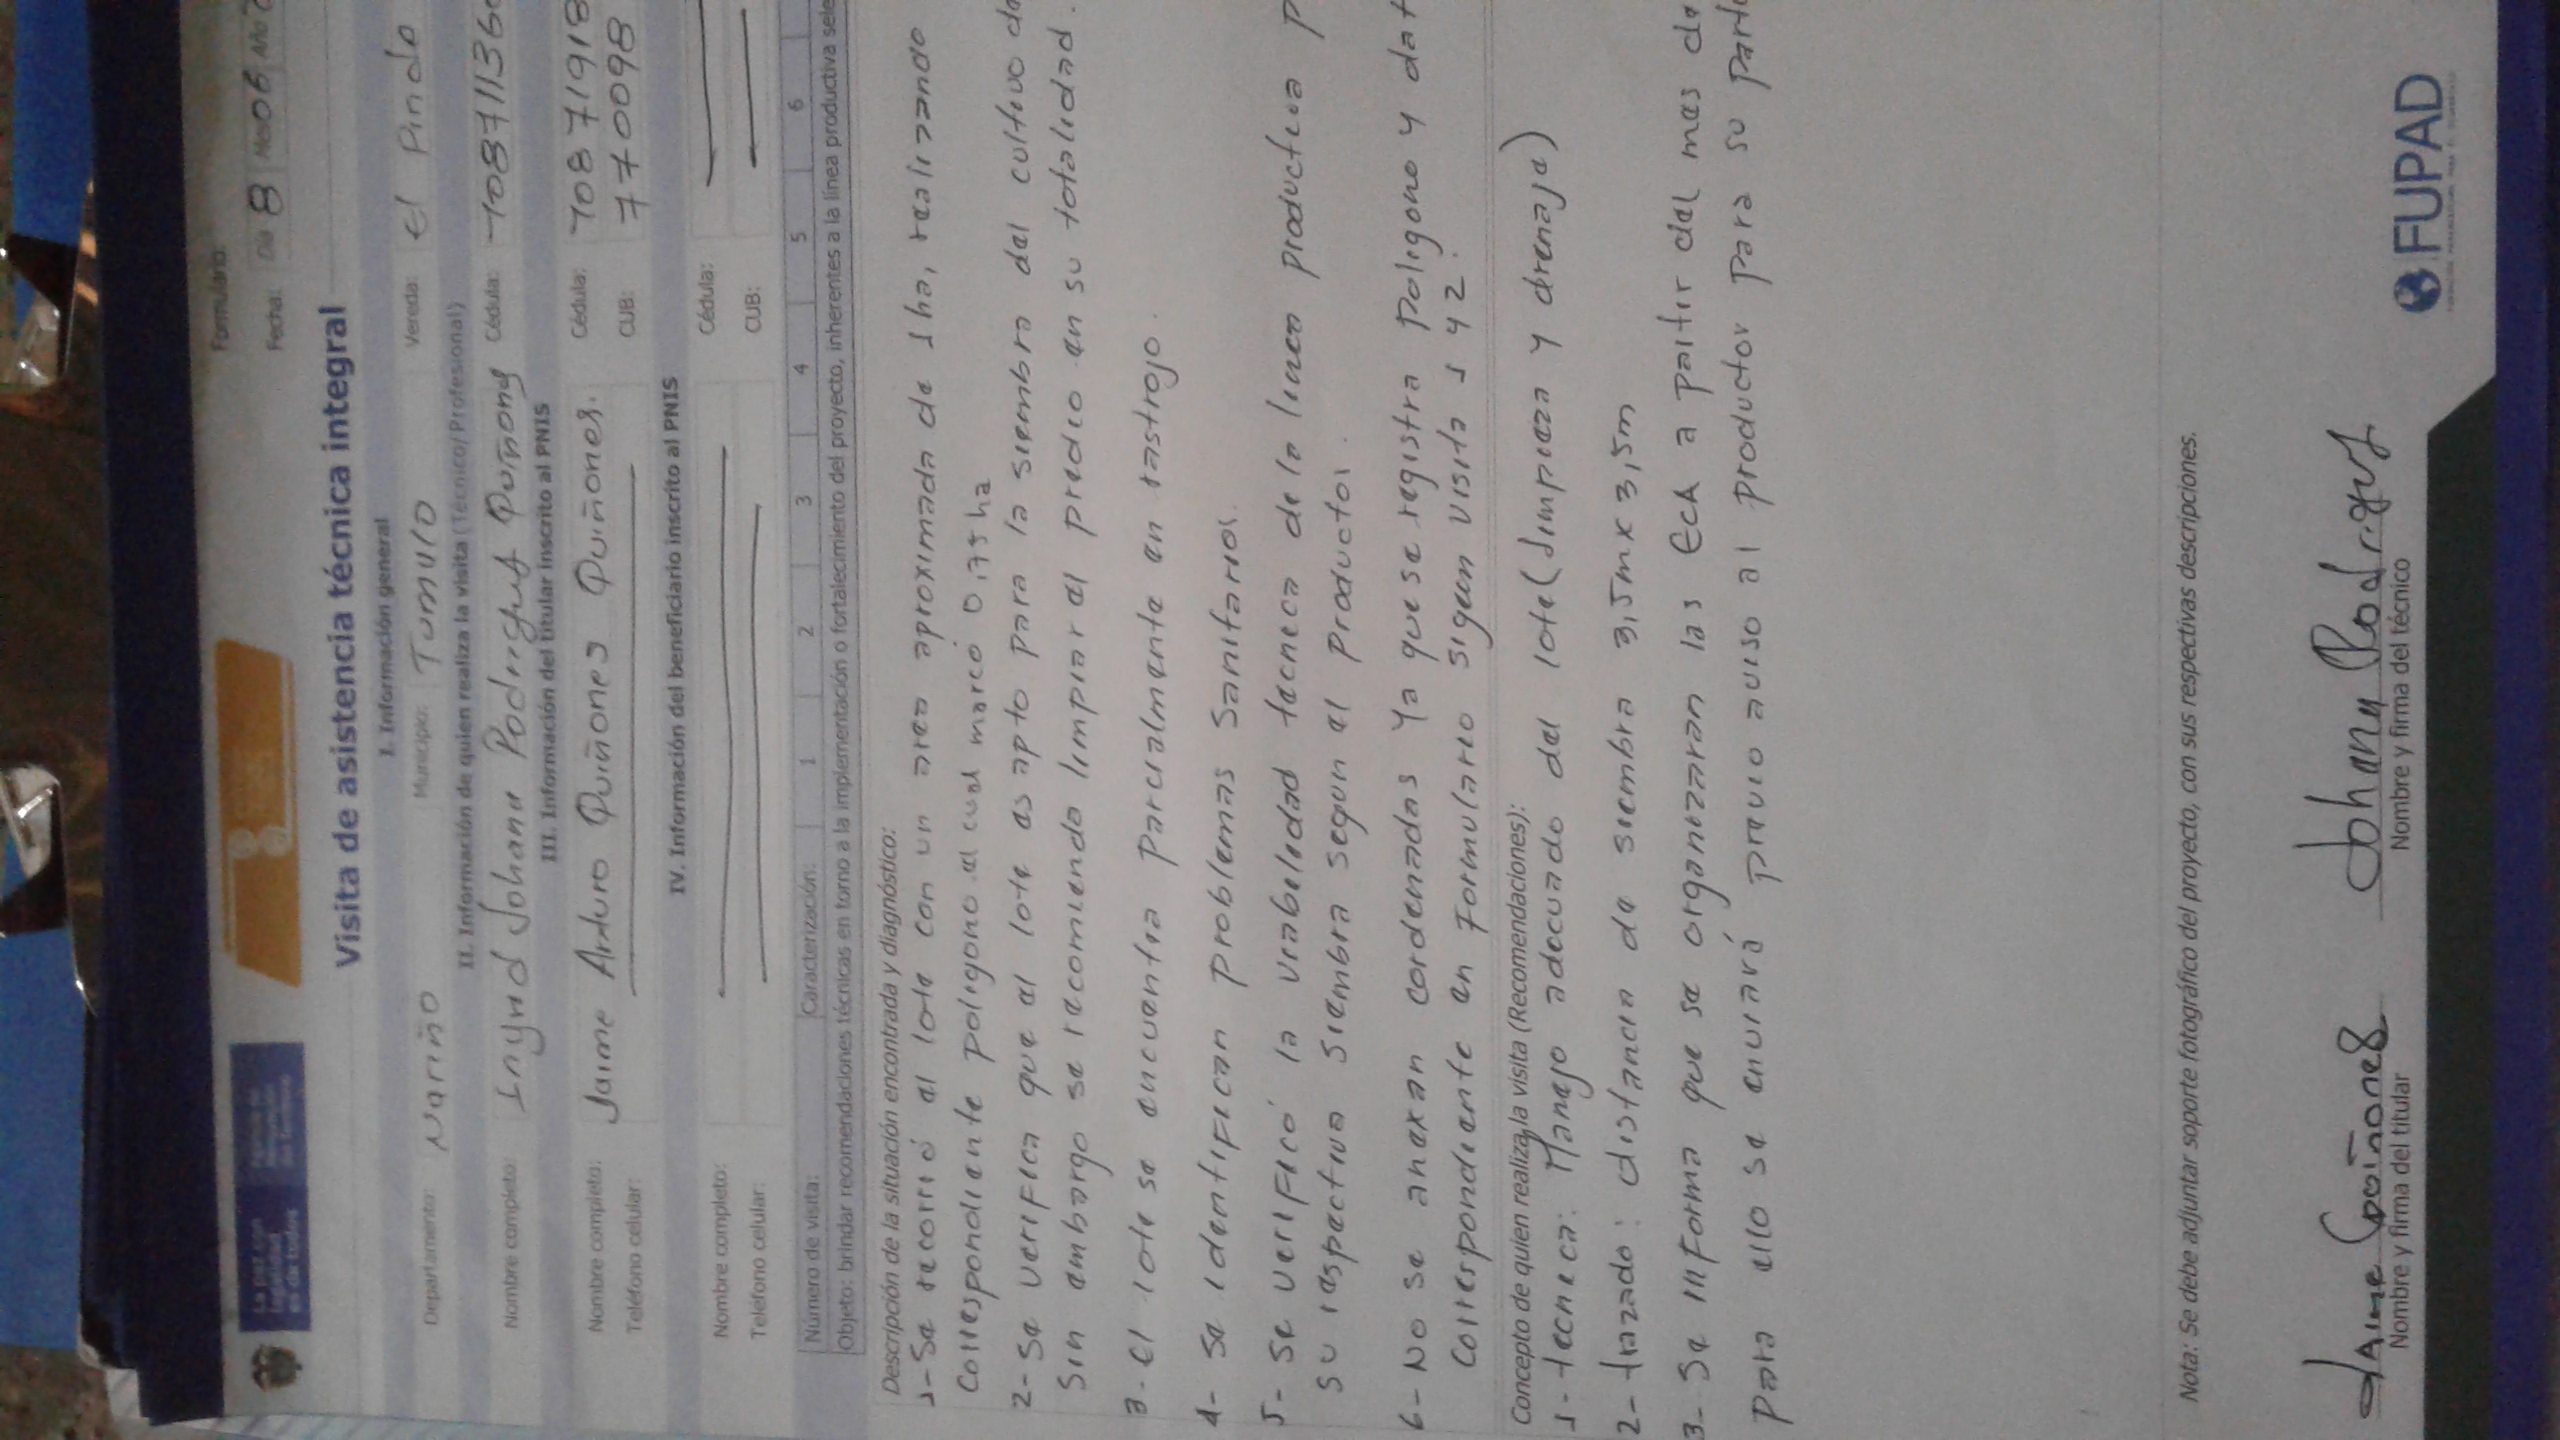 Formulario
Fecha: Día 8 Mes 06 Año
Visita de asistencia técnica integral
I. Información general
Departamento: Nariño Municipio: Tumulo Vereda: el Pindo
II. Información de quien realiza la visita (Técnico/ Profesional)
Nombre completo: Ingrid Johana Rodriguez Quiñones Cédula: 108711360
III. Información del titular inscrito al PNIS
Nombre completo: Jaime Arturo Quiñones Quiñones. Cédula: 10871918
Teléfono celular: CUB: 770098
IV. Información del beneficiario inscrito al PNIS
Nombre completo: Cédula:
Teléfono celular: CUB:
Número de visita: Caracterización: 1 2 3 4 5 6
Objeto: brindar recomendaciones técnicas en torno a la implementación o fortalecimiento del proyecto, inherentes a la línea productiva sele
Descripción de la situación encontrada y diagnóstico:
1- Se recorrió el lote con un area aproximada de 1 ha, realizando
Correspondiente poligono el cual marcó 0,175 ha
2- Se verifica que el lote es apto para la siembra del cultivo de
Sin embargo se recomienda limpiar el predio en su totalidad.
3- El lote se encuentra parcialmente en rastrojo.
4- Se identifican problemas Sanitarios.
5- Se verificó la viabilidad tecnica de la linea productiva p
su respectiva siembra segun el Productor.
6- No se anexan cordenadas Ya que se registra Poligono y dat
Correspondiente en Formulario Sigem visita 1 y 2.
Concepto de quien realiza la visita (Recomendaciones):
1- tecnica: Manejo adecuado del lote (Limpieza y drenaje)
2- trazado: distancia de siembra 3,5m x 3,5m
3- Se informa que se organizaran las ECA a partir del mes de
Para ello se enviará previo aviso al productor para su parti
Nota: Se debe adjuntar soporte fotográfico del proyecto, con sus respectivas descripciones.
Jaime Quiñones Johany Rodriguez
Nombre y firma del titular Nombre y firma del técnico
FUPAD